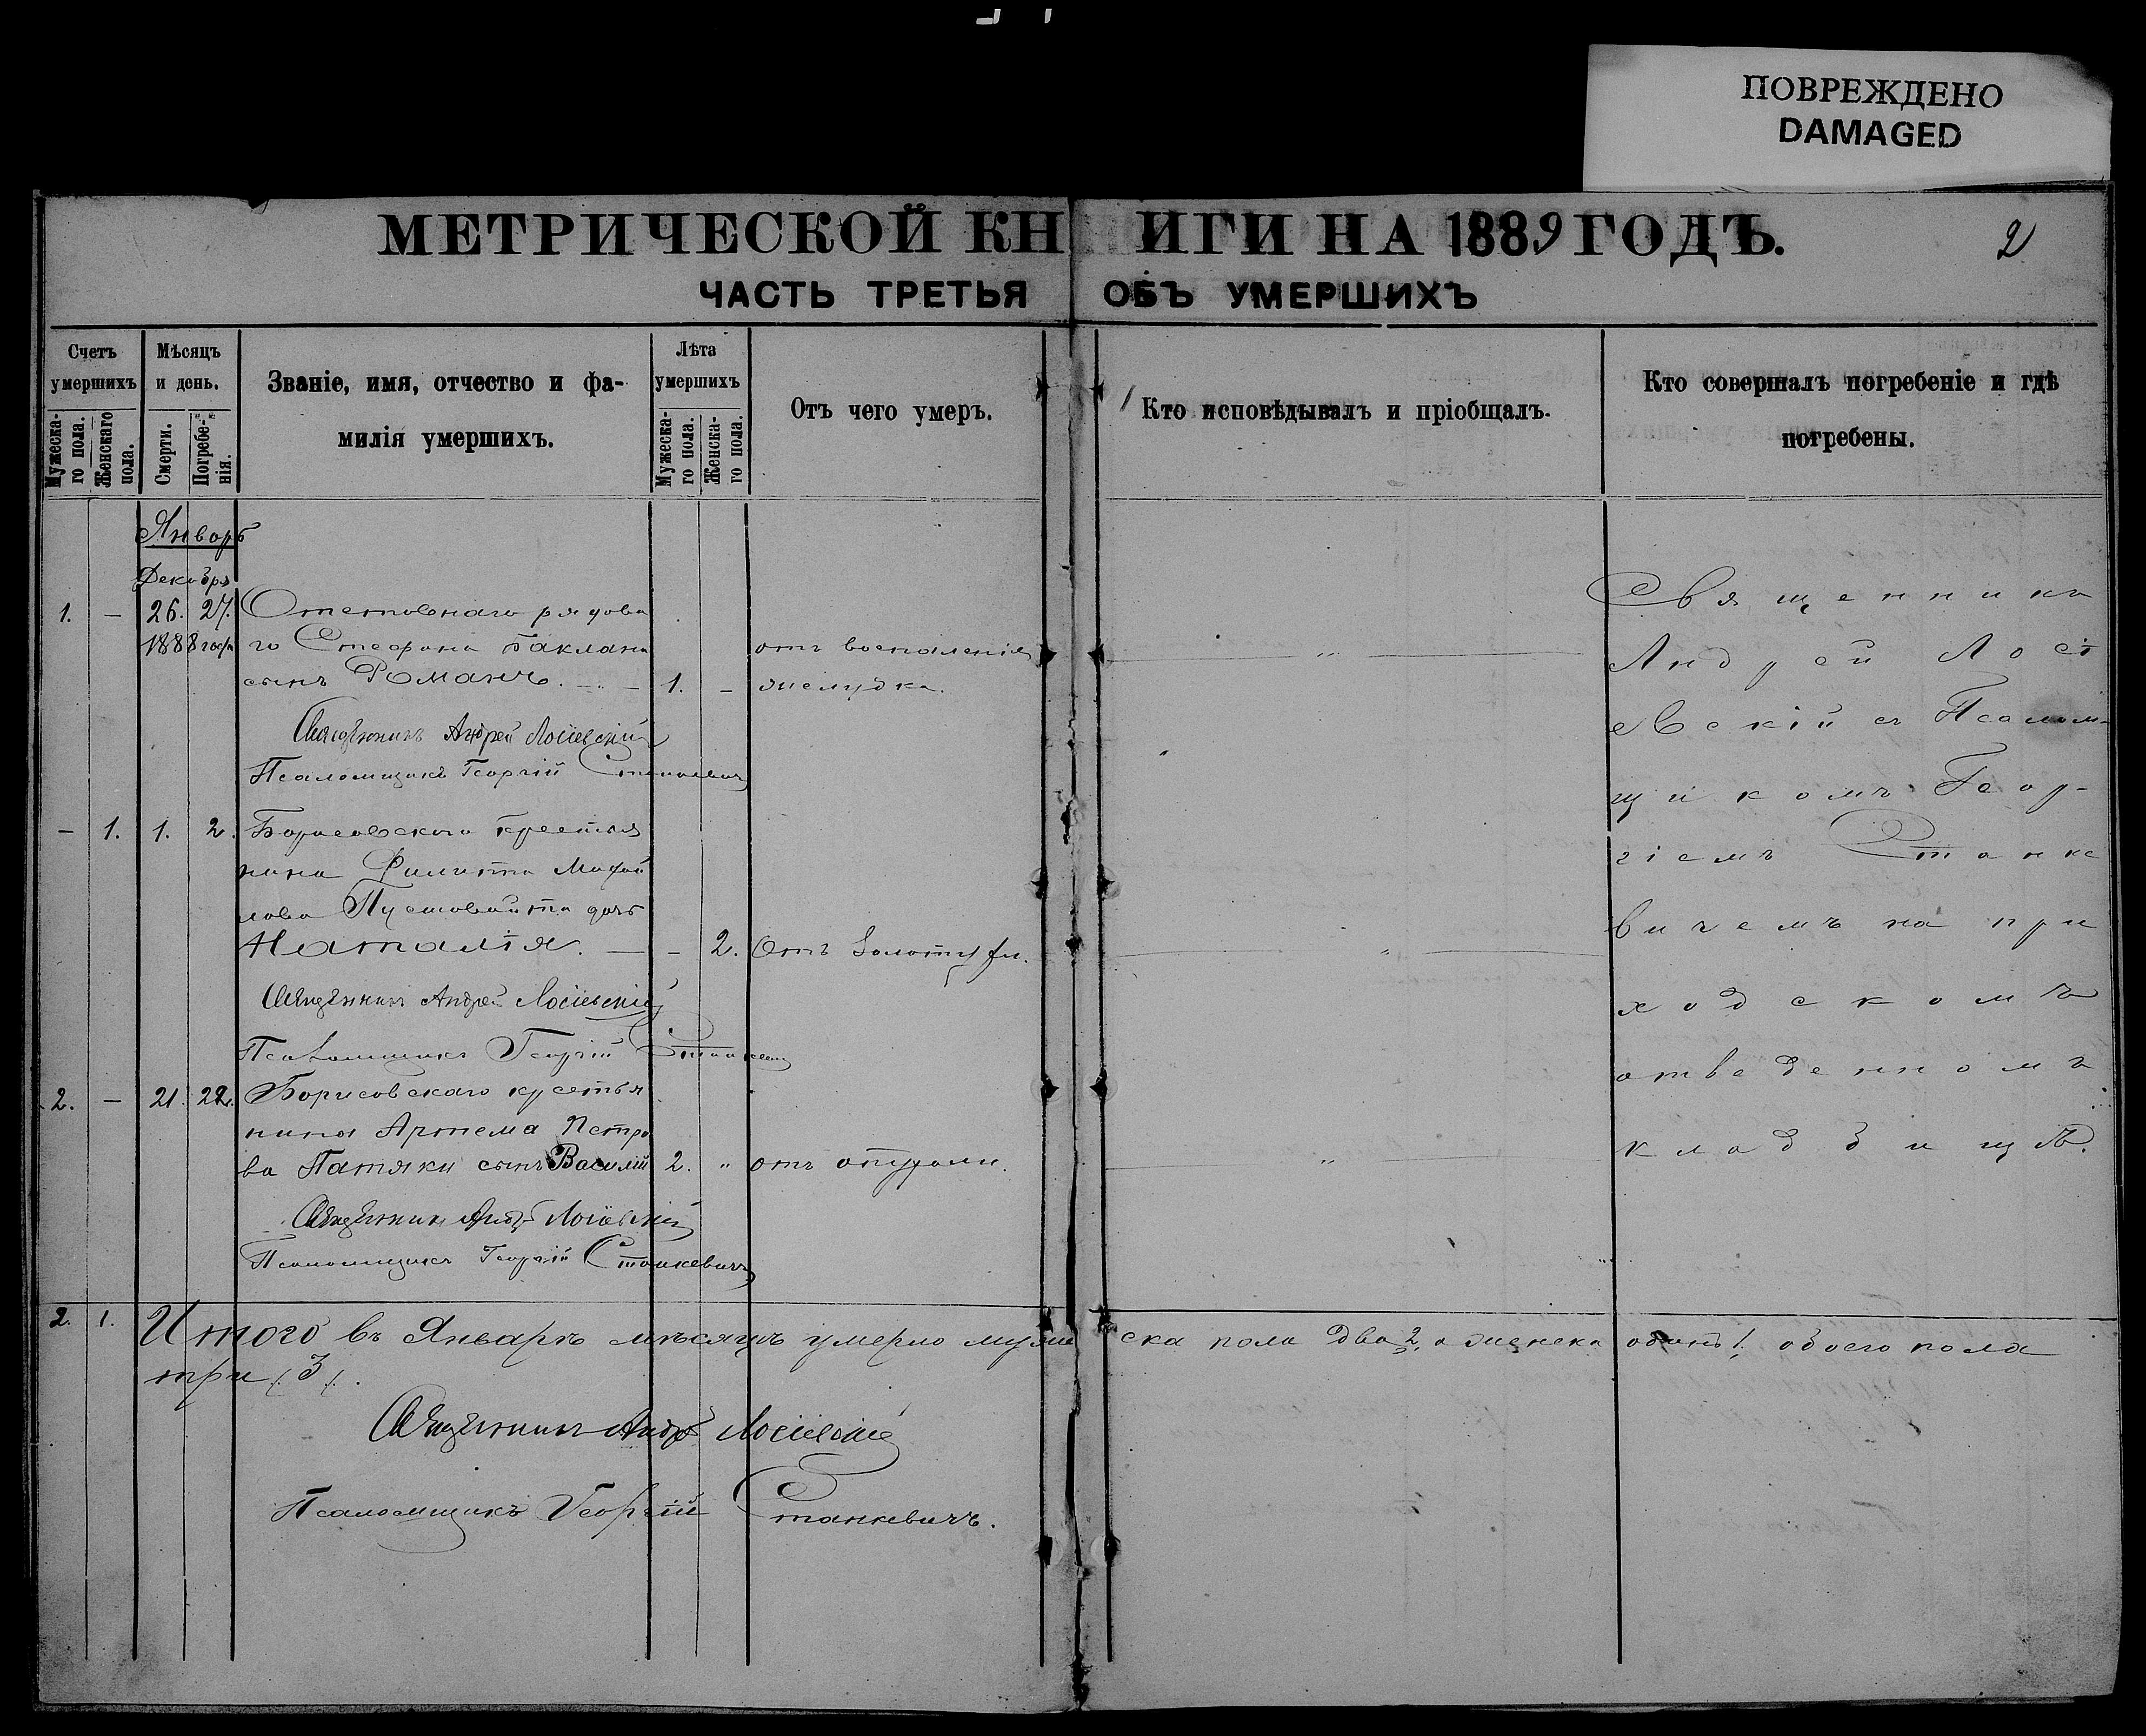 ПОВРЕЖДЕНО
DAMAGED
МЕТРИЧЕСКОЙ КНИГИ НА 1889 ГОДЪ.
2
ЧАСТЬ ТРЕТЬЯ ОБЪ УМЕРШИХЪ
Счетъ умершихъ
Мужеска-го пола.
Женскаго пола.
Мѣсяцъ и день.
Смерти.
Погребе-нія.
Званіе, имя, отчество и фа-
милія умершихъ.
Лѣта умершихъ
Мужеска-го пола.
Женска-го пола.
Отъ чего умеръ.
Кто исповѣдывалъ и пріобщалъ.
Кто совершалъ погребеніе и гдѣ
погребены.
Январь
Декабря
1. — 26. 27. Отставнаго рядова
1888 года го Стефана Баклана отъ воспаленія
сынъ Романъ. — 1. — желудка.
Священникъ Андрей Лосіевскій
Псаломщикъ Георгій Станкевичъ
— 1. 1. 2. Борисовскаго крестья
нина Филиппа Михай
лова Пустовойта дочь
Наталія. — — 2. Отъ золотухи.
Священникъ Андрей Лосіевскій
Псаломщикъ Георгій Станкевичъ
2. — 21. 22. Борисовскаго крестья
нина Артема Петро
ва Патяки сынъ Василій 2. " отъ опухоли.
Священникъ Андрей Лосіевскій
Псаломщикъ Георгій Станкевичъ
Священникъ
Андрей Лосі
евскій съ Псалом-
щикомъ Геор-
гіемъ Станке
вичемъ на при
ходскомъ
отведенномъ
кладбищѣ.
2. 1. Итого въ Январѣ мѣсяцѣ умерло мужеска пола два 2, а женска одинъ 1, обоего пола
три (3).
Священникъ Андрей Лосіевскій
Псаломщикъ Георгій Станкевичъ.